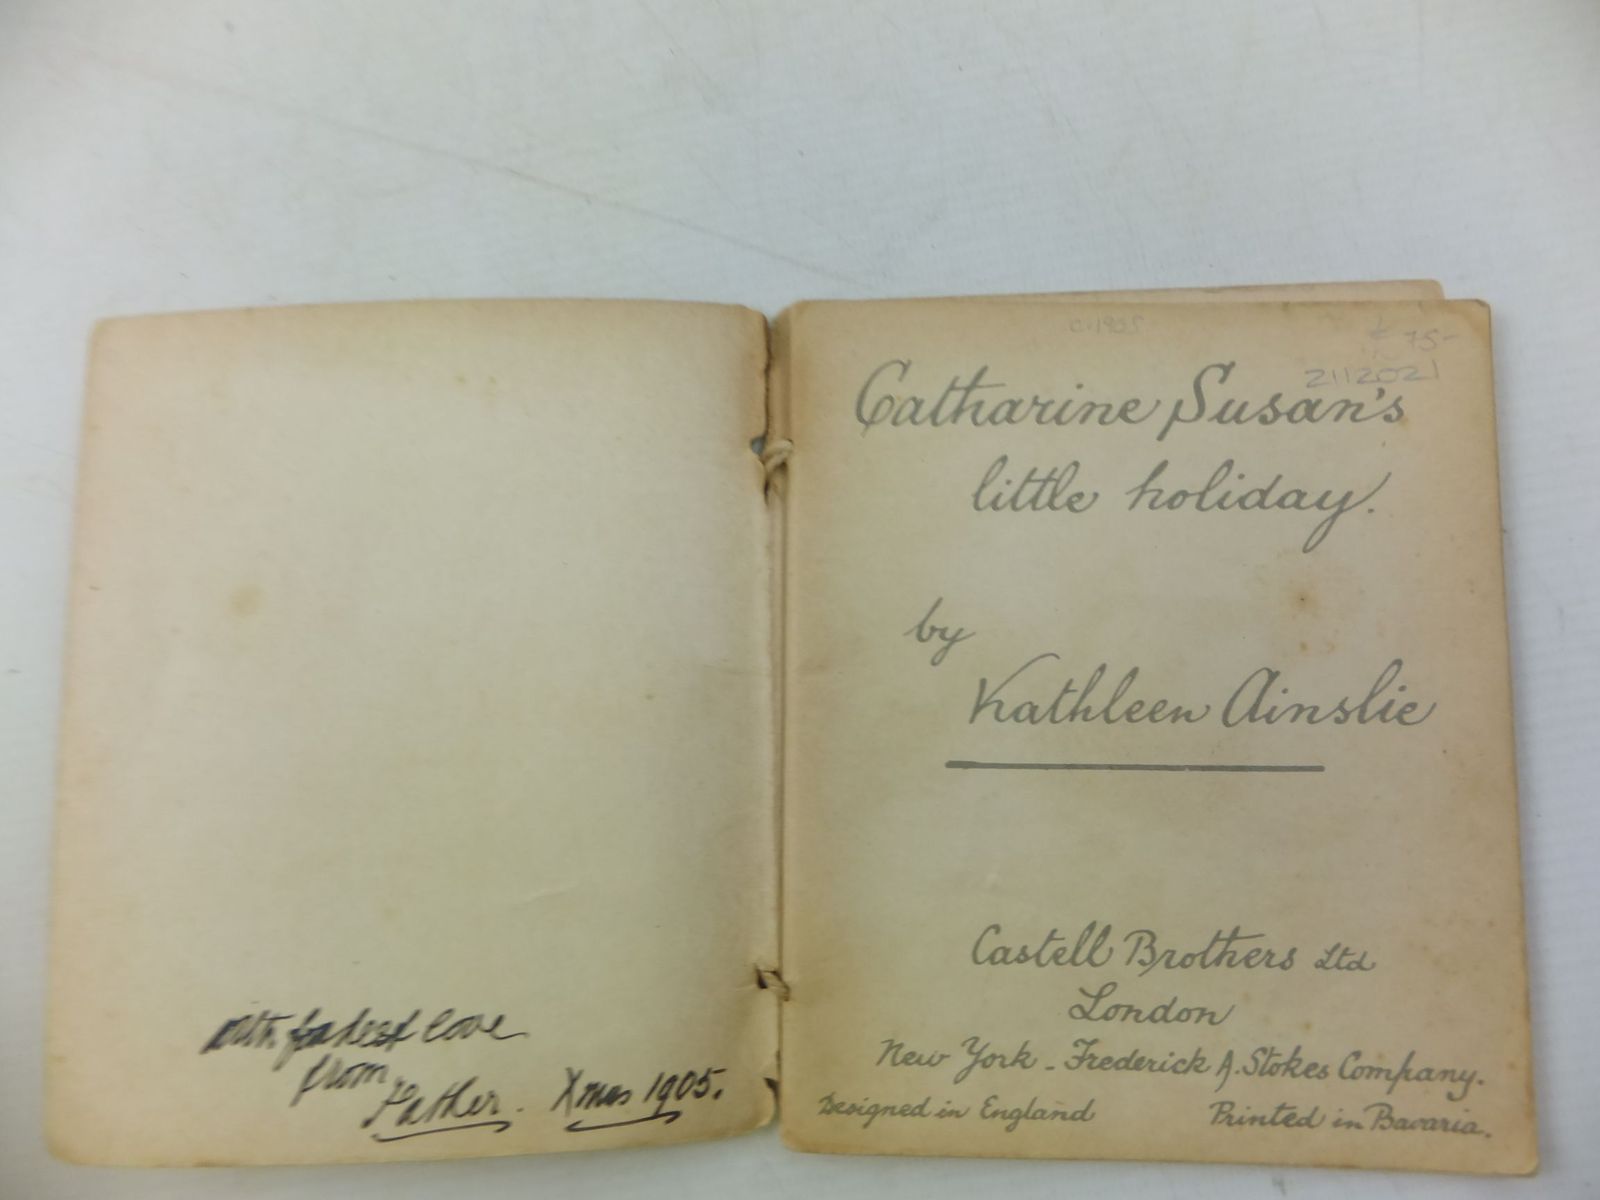 with fondest love
from
Father. Xmas 1905.
c.1905
£75-
2112021
Catharine Susan's
little holiday.
by
Kathleen Ainslie
Castell Brothers Ltd
London
New York - Frederick A. Stokes Company.
Designed in England Printed in Bavaria.